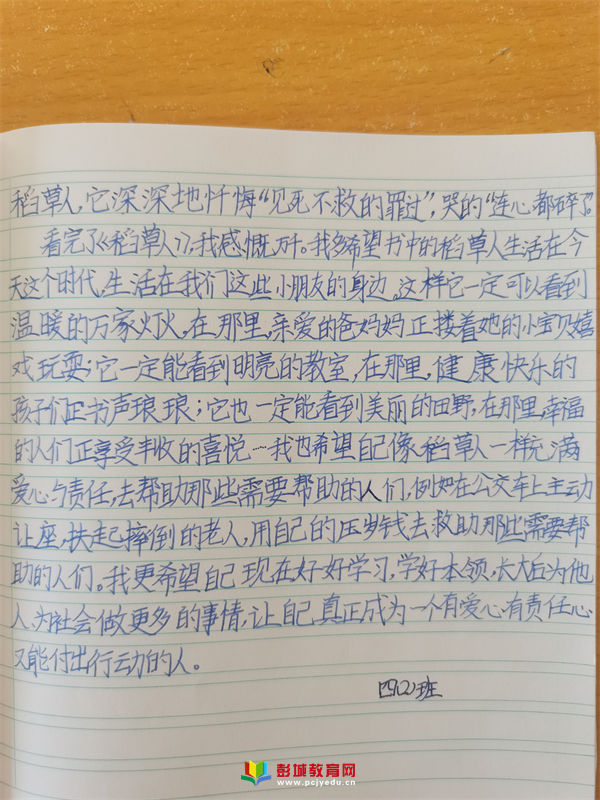 稻草人,它深深地忏悔“见死不救的罪过”,哭的“连心都碎了”。
看完了《稻草人》,我感慨万千。我多希望书中的稻草人生活在今
天这个时代,生活在我们这些小朋友的身边。这样它一定可以看到
温暖的万家灯火,在那里,亲爱的爸妈妈正搂着她的小宝贝嬉
戏玩耍;它一定能看到明亮的教室,在那里,健康快乐的
孩子们正书声琅琅;它也一定能看到美丽的田野,在那里,幸福
的人们正享受丰收的喜悦……我也希望自己像稻草人一样充满
爱心与责任,去帮助那些需要帮助的人们,例如在公交车上主动
让座,扶起摔倒的老人,用自己的压岁钱去救助那些需要帮
助的人们。我更希望自己现在好好学习,学好本领,长大后为他
人、为社会做更多的事情,让自己真正成为一个有爱心有责任心
又能付出行动的人。
四(2)班
彭城教育网
www.pcjyedu.cn